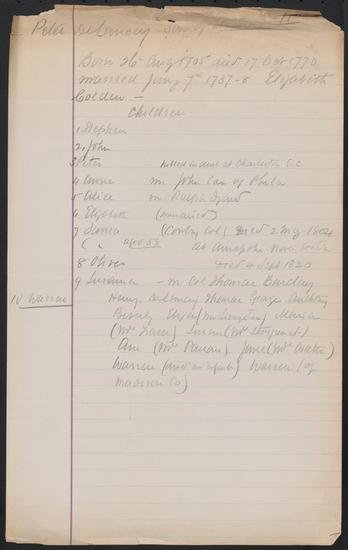 Peter DeLancey Son of
11
Born 26 Aug 1705 died 17 Oct 1770
married Jany 7th 1737-8 Elizabeth
Colden —
Children
1 Stephen
2 John
3 Peter killed in duel at Charleston S.C.
4 Anne m John Cox of Phila
5 Alice m Ralph Izard
6 Elizabeth (unmarried)
7 James Died 2 May 1804
aged 58 at Annapolis Nova Scotia
8 Oliver Died 4 Sept 1820
9 Susanna — m Col Thomas Barclay
10 Warren
Henry DeLancey Thomas George Anthony
Beverly Eliza (Mrs Livingston) Maria
(Mrs) Susan (Mrs Stuyvesant)
Ann (Mrs Parsons) Jane (Mrs)
Warren (died an infant) Warren (of
Madison Co)